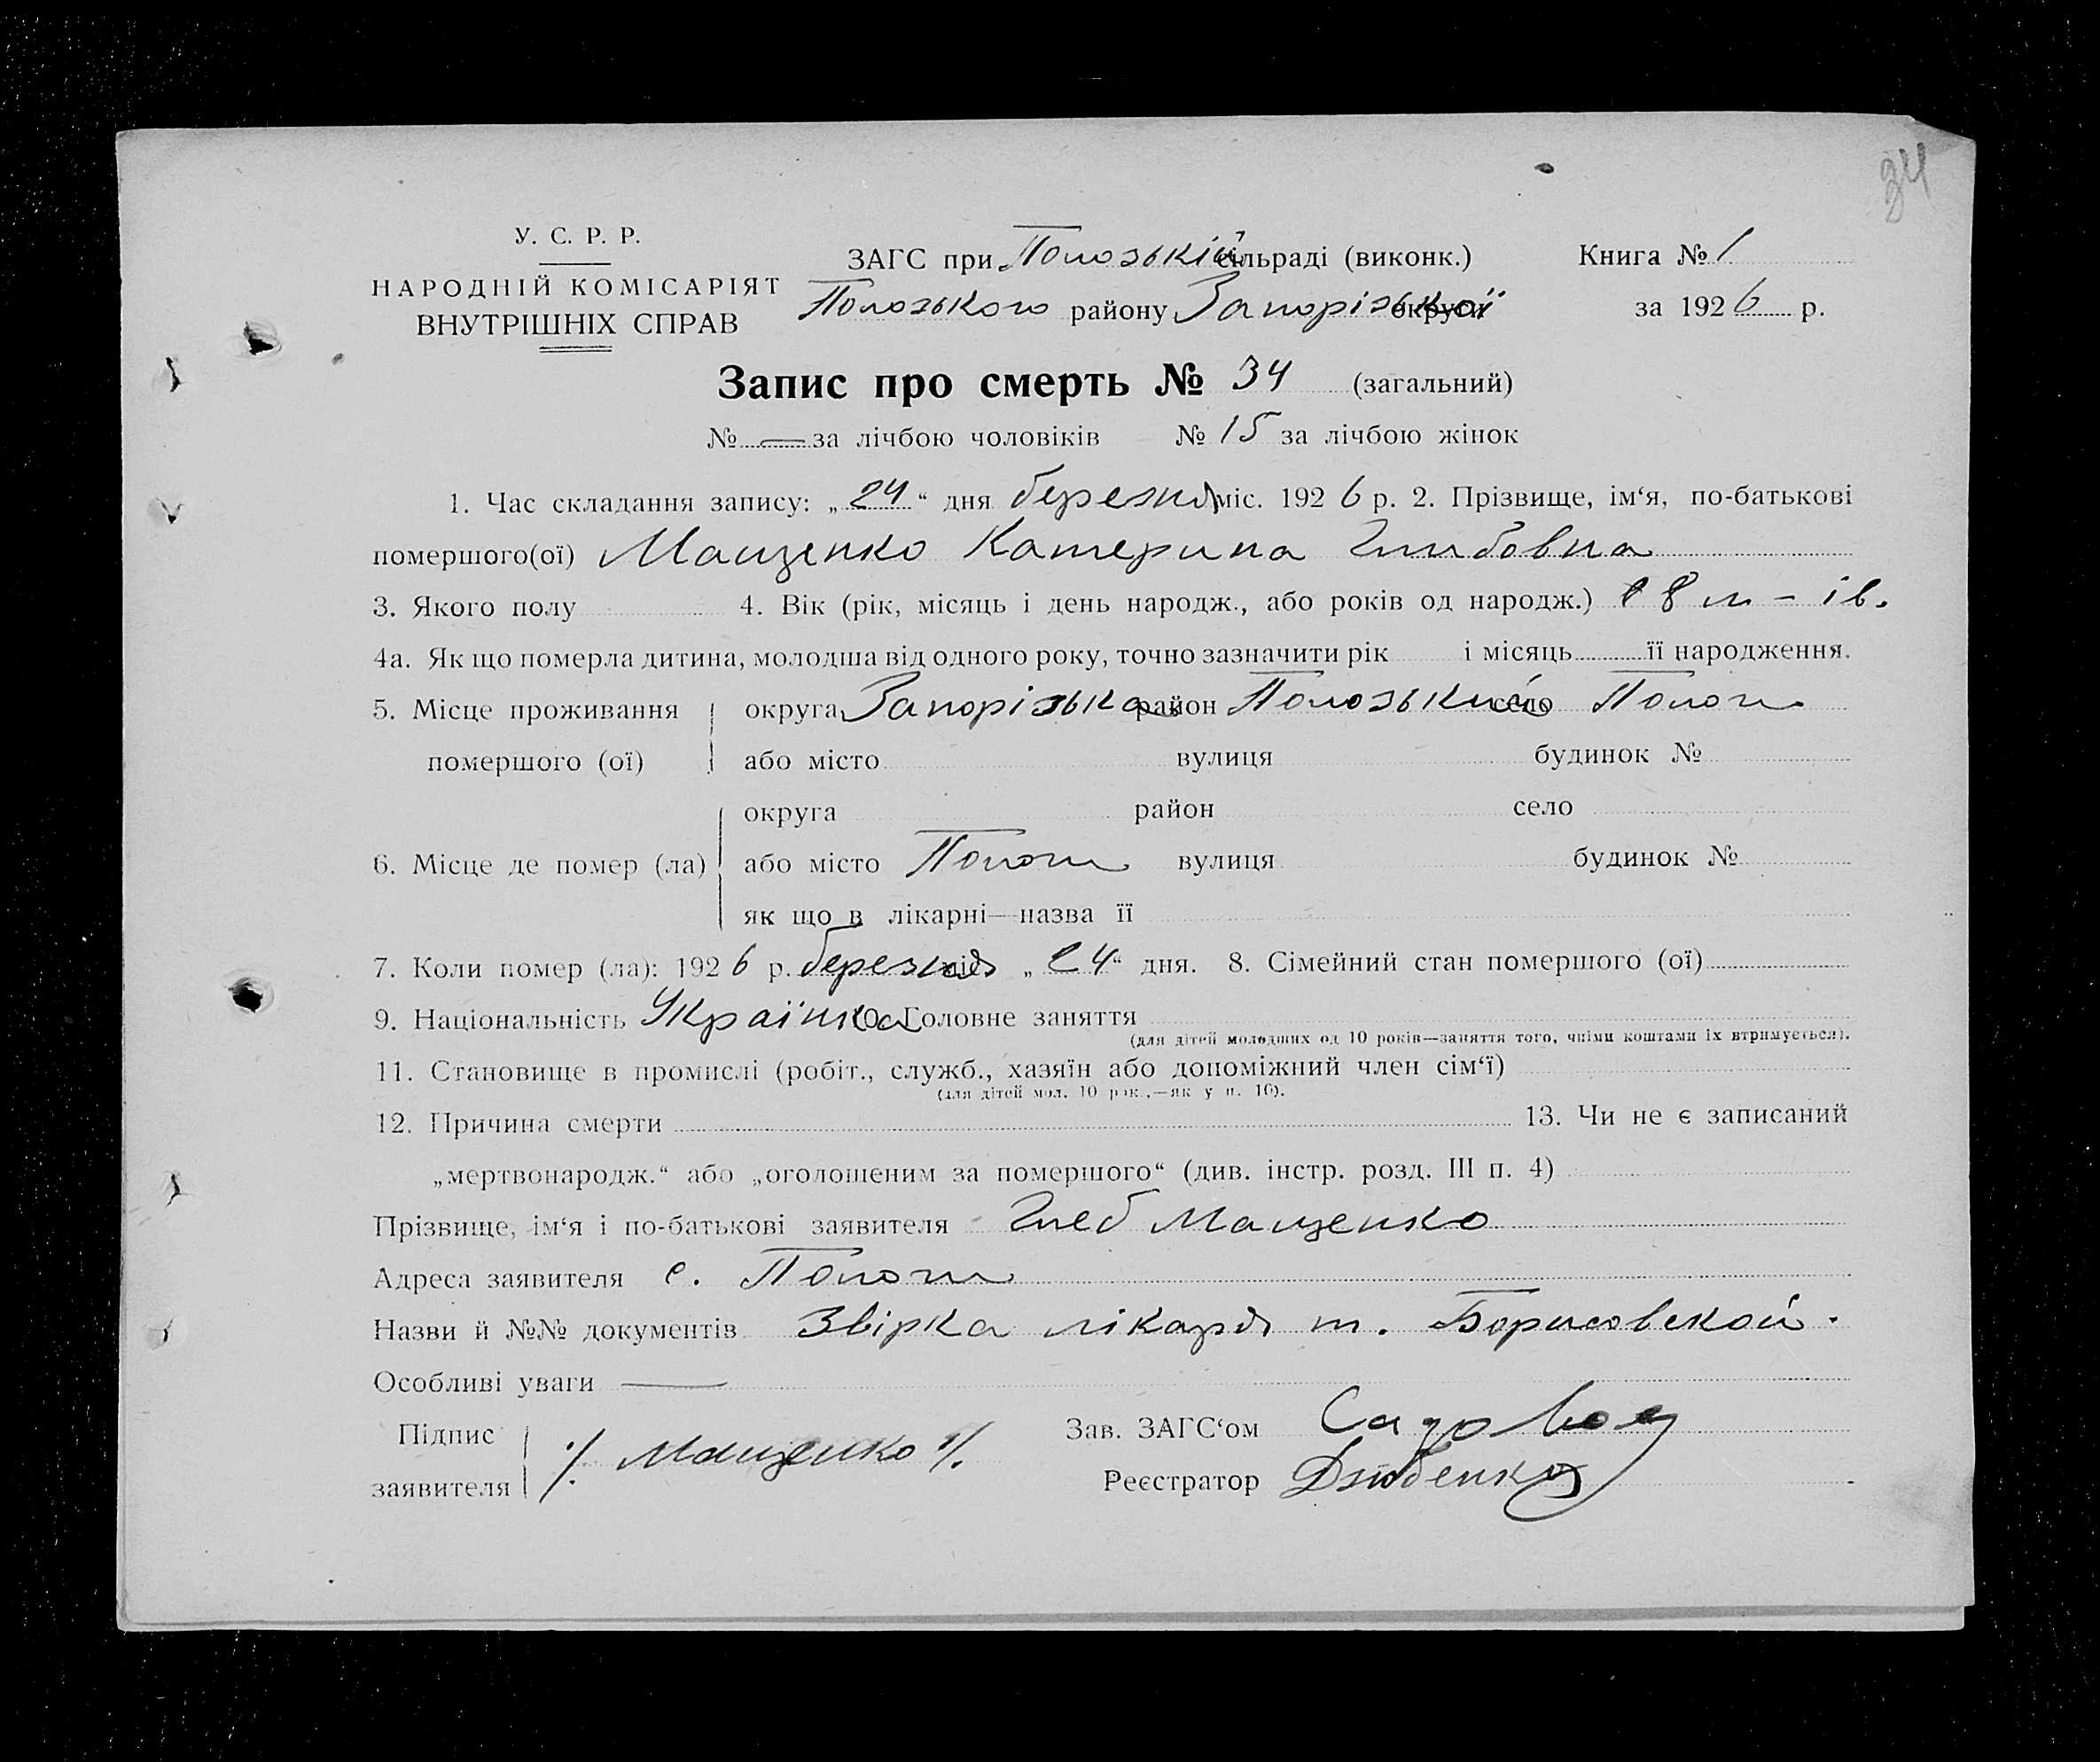 34
У. С. Р. Р.
НАРОДНІЙ КОМІСАРІЯТ
ВНУТРІШНІХ СПРАВ
ЗАГС при Полозькій сільраді (виконк.)
Полозького району Запорізької округи
Книга № 1
за 1926 р.
Запис про смерть № 34 (загальний)
№ — за лічбою чоловіків № 15 за лічбою жінок
1. Час складання запису: „24“ дня березня міс. 1926 р. 2. Прізвище, ім‘я, по-батькові
помершого(ої) Мащенко Катерина Глибовна
3. Якого полу 4. Вік (рік, місяць і день народж., або років од народж.) 8 м – ів.
4а. Як що померла дитина, молодша від одного року, точно зазначити рік і місяць її народження.
5. Місце проживання округа Запорізька район Полозький село Пологи
помершого (ої) або місто вулиця будинок №
округа район село
6. Місце де помер (ла) або місто Пологи вулиця будинок №
як що в лікарні—назва її
7. Коли помер (ла): 1926 р. березня міс. „24“ дня. 8. Сімейний стан помершого (ої)
9. Національність Українка 10. Головне заняття
(для дітей молодших од 10 років—заняття того, чиїми коштами їх втримується).
11. Становище в промислі (робіт., служб., хазяїн або допоміжний член сім‘ї)
(для дітей мол. 10 рок.,—як у п. 10).
12. Причина смерти 13. Чи не є записаний
„мертвонародж.“ або „оголошеним за помершого“ (див. інстр. розд. III п. 4)
Прізвище, ім‘я і по-батькові заявителя Глеб Мащенко
Адреса заявителя с. Пологи
Назви й №№ документів Звірка лікаря т. Борисовской.
Особливі уваги —
Підпис
заявителя ./. Мащенко ./.
Зав. ЗАГС‘ом
Реєстратор Дзюбенко